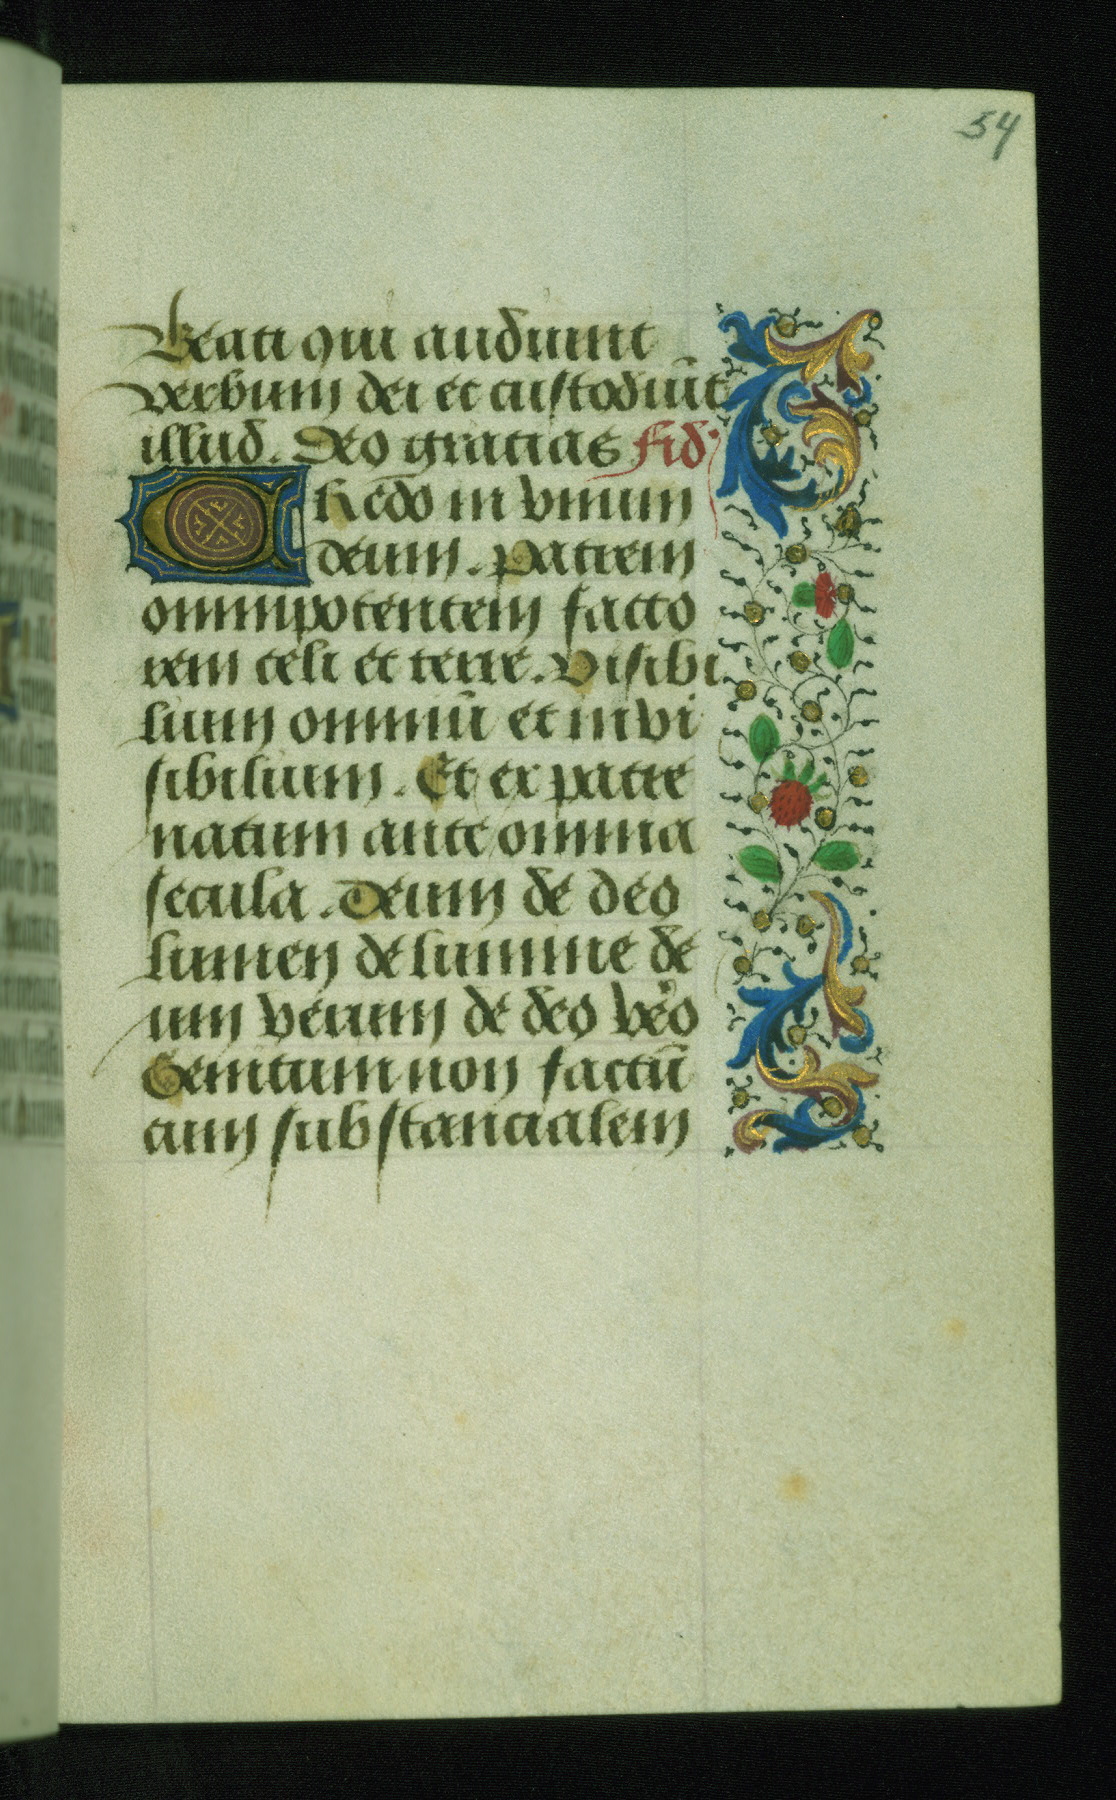 54
Beati qui audiunt
verbum dei et custodiūt
illud. Deo gracias fid'
Credo in vnum
deum. patrem
omnipotentem facto
rem celi et terre. Visibi
lium omniū et invi
sibilium. Et ex patre
natum ante omnia
secula. Deum de deo
lumen de lumine de
um verum de deo vero
Genitum non factū
cum substancialem